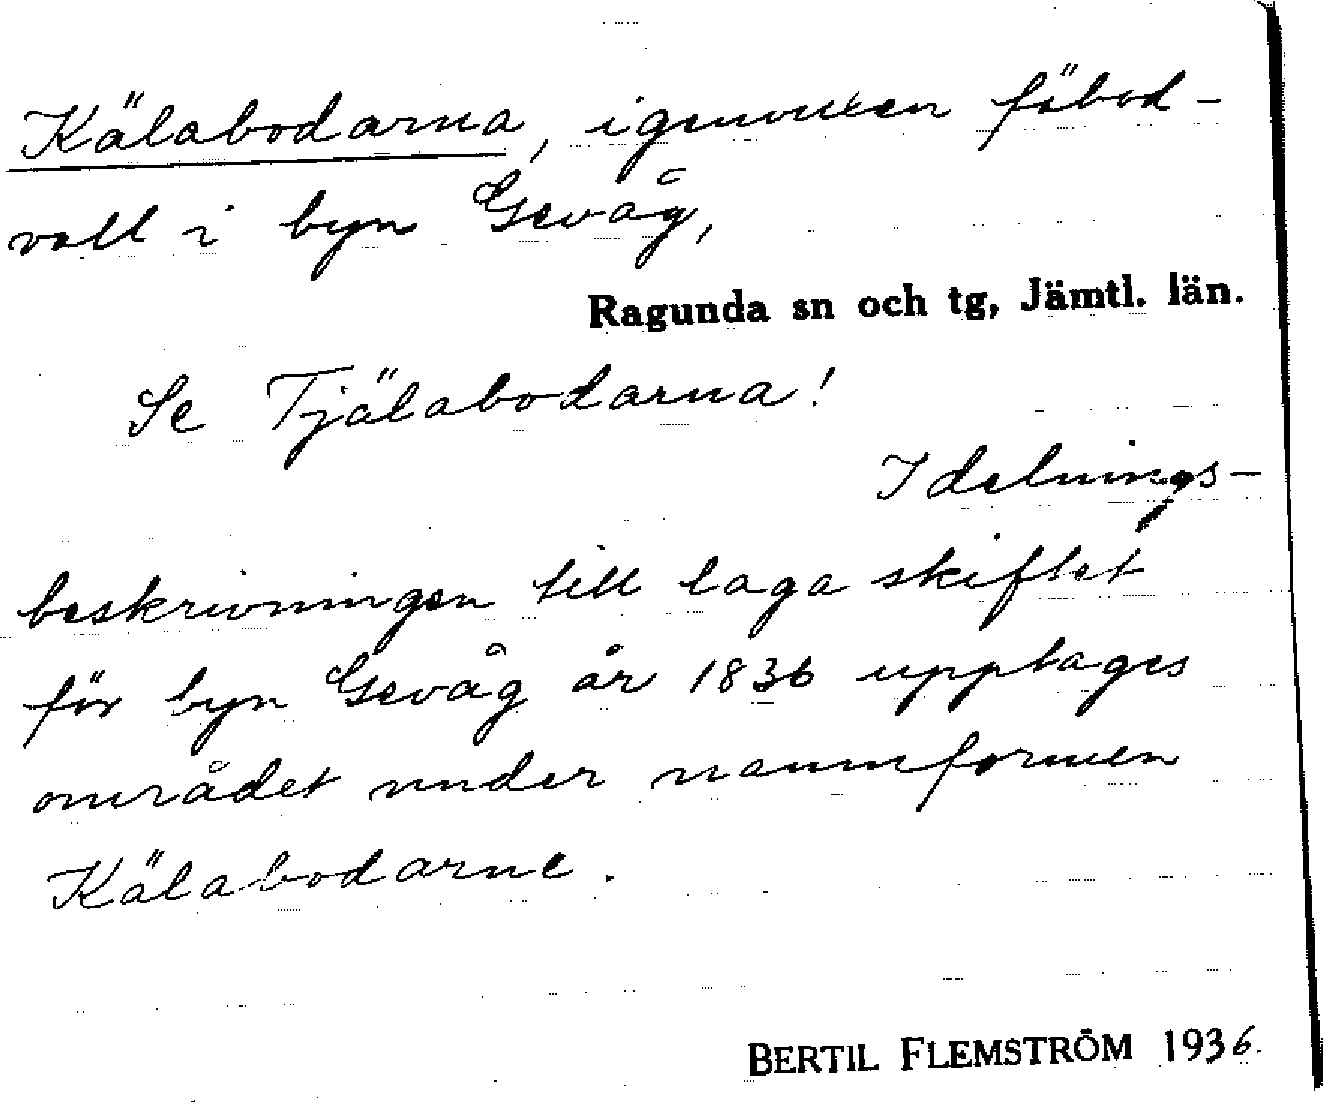 Kälabodarna, igenvuxen fäbod-
vall i byn Gevåg,
Ragunda sn och tg, Jämtl. län.
Se Tjälabodarna!
I delnings-
beskrivningen till laga skiftet
för byn Gevåg år 1836 upptages
området under namnformen
Kälabodarne.
BERTIL FLEMSTRÖM 1936.